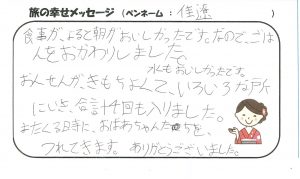 旅の幸せメッセージ（ペンネーム：佳遥）
食事が、よると朝がおいしかったです。なので、ごは
んをおかわりしました。
水もおいしかったです。
おんせんが、きもちよくて、いろいろな所
にいき、合計4回も入りました。
またくる時に、おばあちゃんたちを、
つれてきます。ありがとうございました。